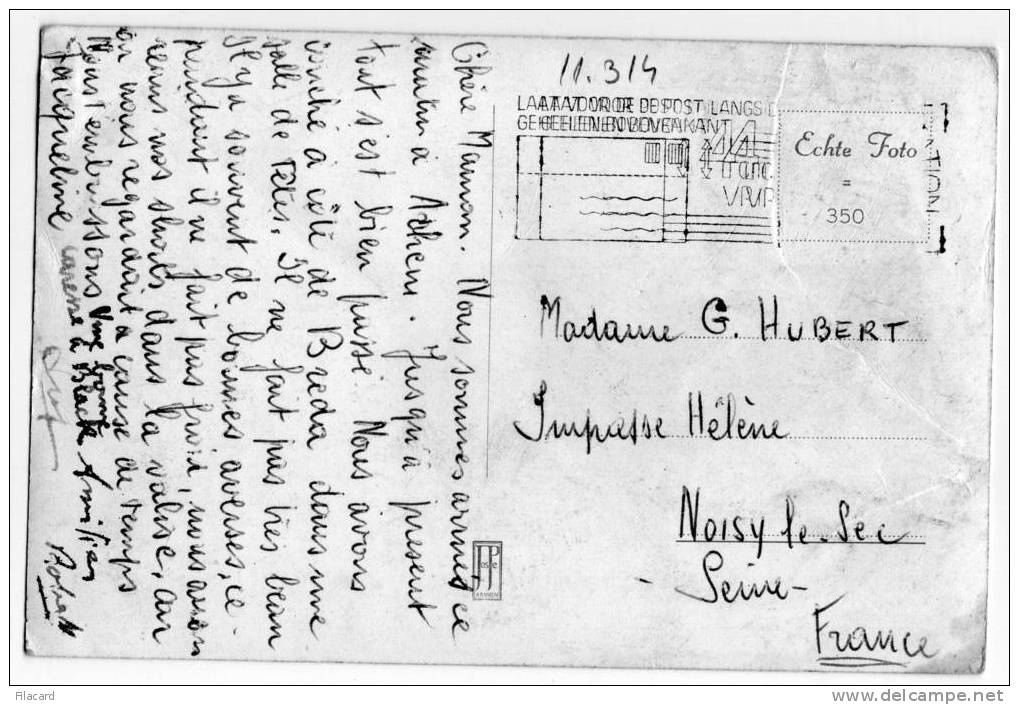 Chère Maman. Nous sommes arrivés ce
matin à Achem. Jusqu'à présent
tout s'est bien passé. Nous avons
couché à côté de Breda dans une
salle de fêtes. Il ne fait pas très beau
il y a souvent de bonnes averses, ce-
pendant il ne fait pas froid, nous avons
remis nos shorts dans la valise, car
on nous regardait à cause de temps
Nous t'embrissons
Jacqueline
caresse à Black
Amitiés
Robert
11.3/4
LAAT DOOR DE POST LANGS
GEHEEL EN BOVENKANT
Echte Foto
=
350
Madame G. HUBERT
Impasse Hélène
NOISY le-Sec
- Seine -
France
Filacard
www.delcampe.net